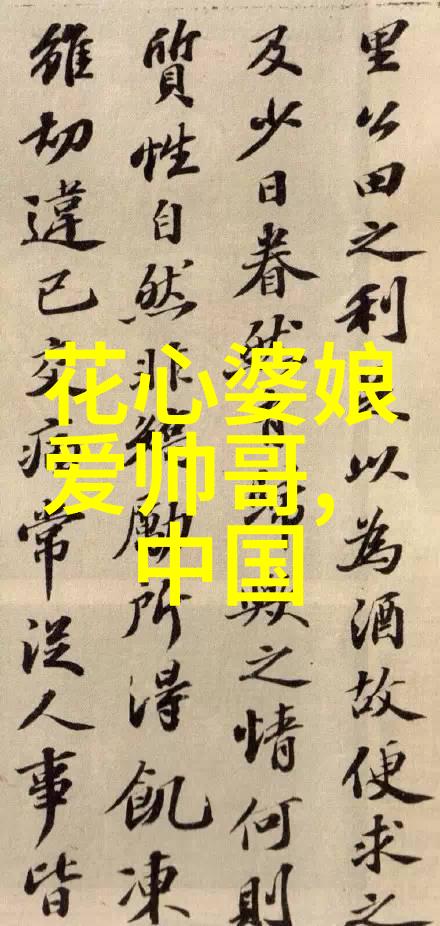 花心婆娘
爱帅哥,
中国
里公田之利以為酒故便求之
及少日眷然有歸歟之情何則
質性自然非矯勵所得飢凍
雖切違已交病常從人事皆